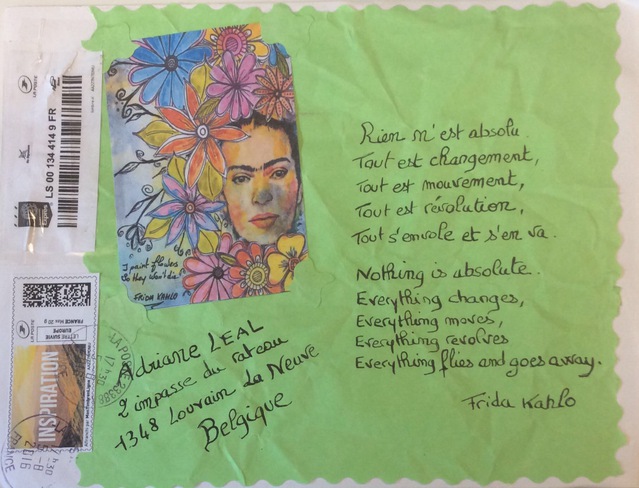 LA POSTE
LS 00 134 414 9 FR
I paint flowers
So they won't die!
FRIDA KAHLO
Rien n'est absolu.
Tout est changement,
Tout est mouvement,
Tout est révolution,
Tout s'envole et s'en va.
Nothing is absolute.
Everything changes,
Everything moves,
Everything revolves
Everything flies and goes away.
Frida Kahlo
Adriane LEAL
2 impasse du rateau
1348 Louvain La Neuve
Belgique
FRANCE Max 20 g
LETTRE SUIVIE
EUROPE
LA POSTE
INSPIRATION
LA POSTE
17h30
2016
FRANCE